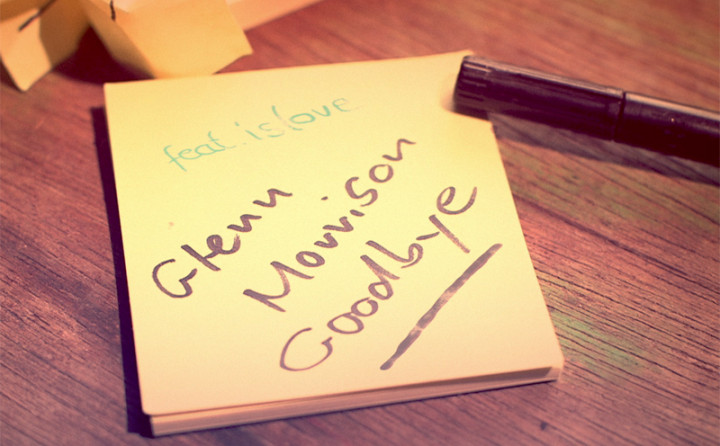 feat. islove
Glenn
Morrison
Goodbye